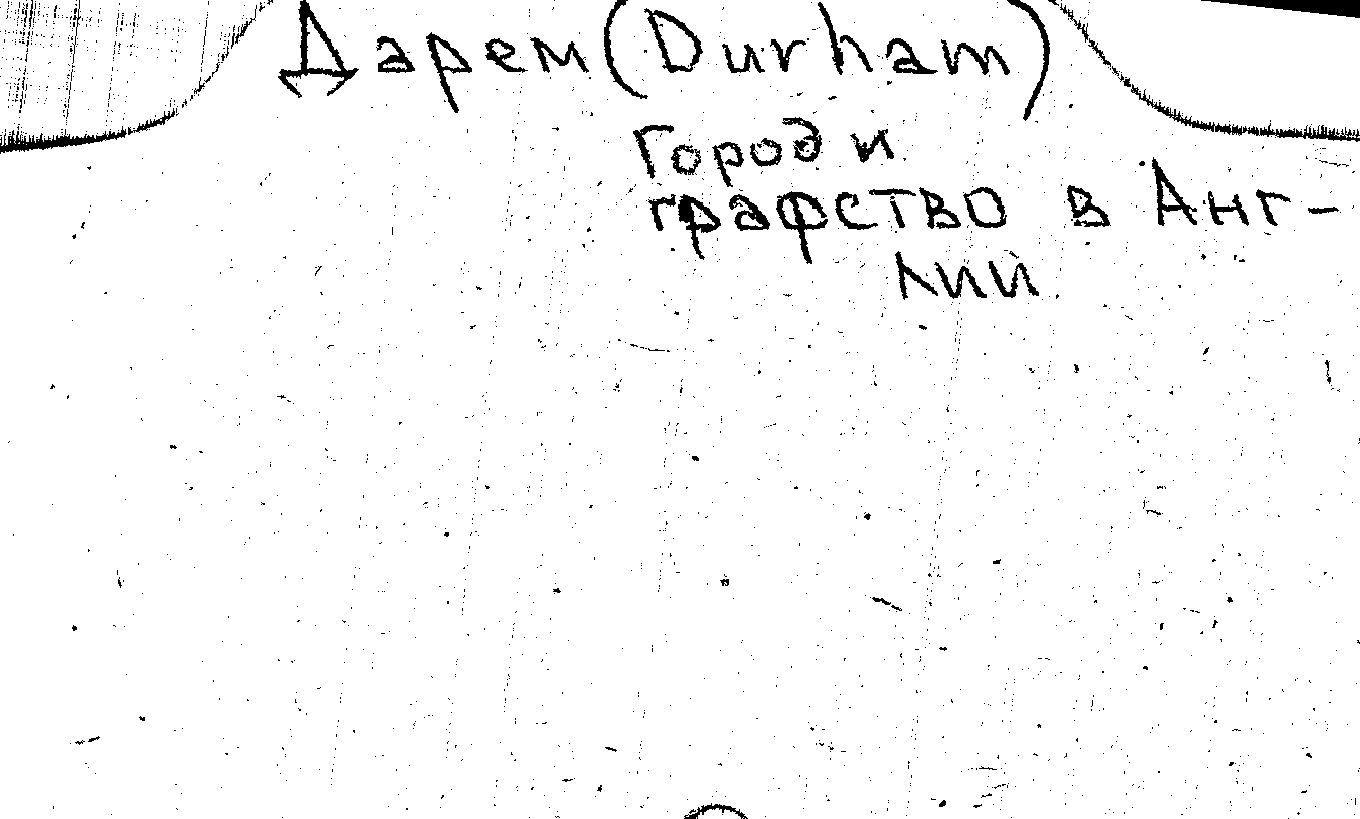 Дарем (Durham)
город и
графство в Анг-
лии